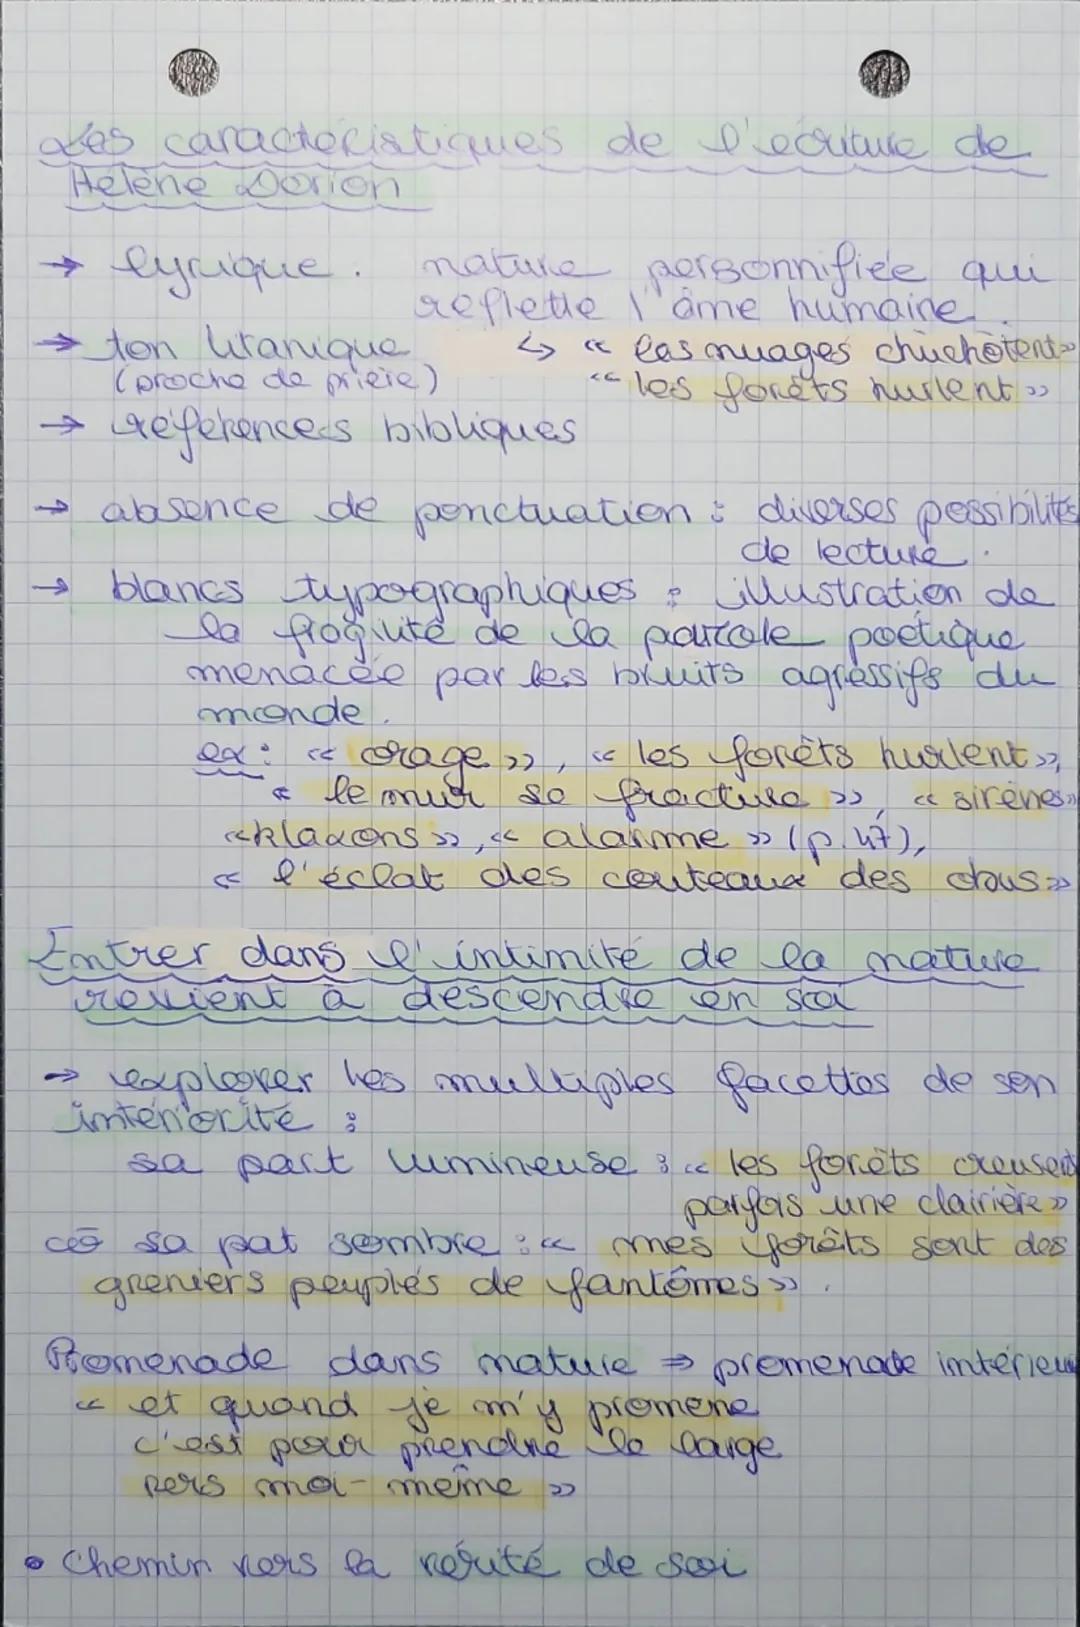 Les caractéristiques de l'écriture de
Hélène Dorion
→ lyrique. nature personnifiée qui
reflette l'âme humaine.
→ ton litanique ↳ « les nuages chuchotent »
(proche de prière) « les forêts hurlent »
→ références bibliques
→ absence de ponctuation : diverses possibilités
de lecture.
→ blancs typographiques : illustration de
la fragilité de la parole poétique
menacée par les bruits agressifs du
monde.
ex : « orage », « les forêts hurlent »,
« le mur se fracture », « sirènes »
« klaxons », « alarme » (p.47),
« l'éclat des couteaux des clous »
Entrer dans l'intimité de la nature
revient à descendre en soi
→ explorer les multiples facettes de son
intériorité :
sa part lumineuse : « les forêts creusent
parfois une clairière »
sa pat sombre : « mes forêts sont des
greniers peuplés de fantômes ».
Promenade dans nature ⇒ promenade intérieu
« et quand je m'y promène
c'est pour prendre le large
vers moi-même »
• Chemin vers la vérité de soi